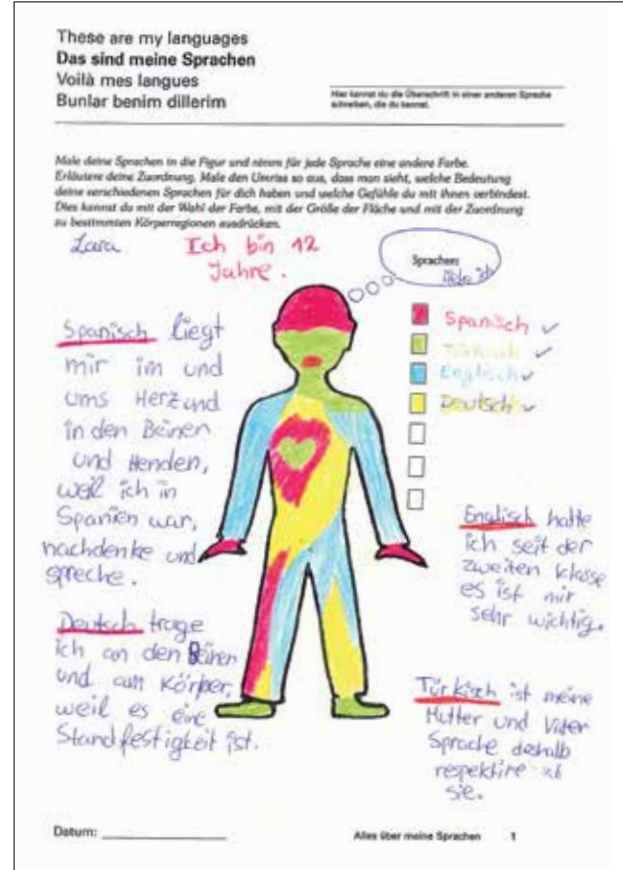 These are my languages
Das sind meine Sprachen
Voilà mes langues
Bunlar benim dillerim
Hier kannst du die Überschrift in einer anderen Sprache
schreiben, die du kennst.
Male deine Sprachen in die Figur und nimm für jede Sprache eine andere Farbe.
Erläutere deine Zuordnung. Male den Umriss so aus, dass man sieht, welche Bedeutung
deine verschiedenen Sprachen für dich haben und welche Gefühle du mit ihnen verbindest.
Dies kannst du mit der Wahl der Farbe, mit der Größe der Fläche und mit der Zuordnung
zu bestimmten Körperregionen ausdrücken.
Lara
Ich bin 12
Jahre.
Sprachen:
ich
Spanisch
Türkisch
Englisch
Deutsch
Spanisch liegt
mir im und
ums Herz und
in den Beinen
und Henden,
weil ich in
Spanien war,
nachdenke und
spreche.
Deutsch trage
ich an den Beinen
und am Körper,
weil es eine
Standfestigkeit ist.
Englisch hatte
ich seit der
zweiten klasse
es ist mir
sehr wichtig.
Türkisch ist meine
Mutter und Vater
Sprache deshalb
respektire ich
sie.
Datum:
Alles über meine Sprachen 1